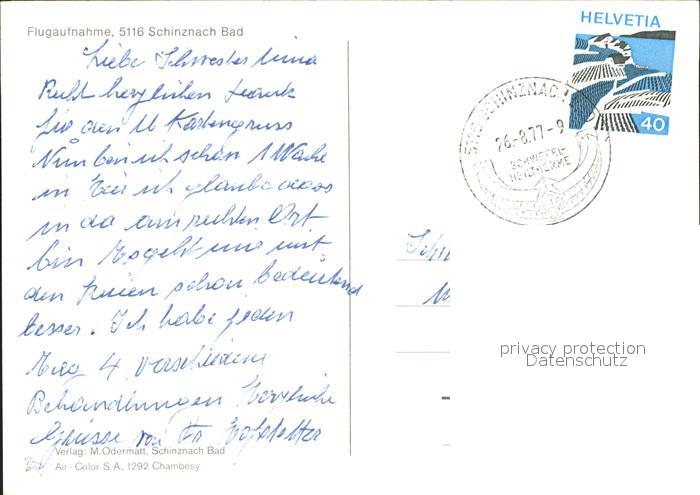 Flugaufnahme, 5116 Schinznach Bad
HELVETIA
40
5116 SCHINZNACH
26-8.77-9
SCHWEFEL-
HEILTHERME
Liebe Schwester
Recht herzlichen Dank
für den lb Kartengruss
Nun bin ich schon 1 Woche
in Kur ich glaube dass
in da am rechten Ort
bin Es geht mir mit
den Knien schon bedeutend
besser. Ich habe jeden
Tag 4 verschiedene
Behandlungen Herzliche
Grüsse von Fr Hofstetter
Verlag: M. Odermatt, Schinznach Bad
Air-Color S.A., 1292 Chambesy
privacy protection
Datenschutz